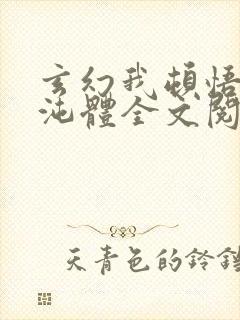 玄幻我頓悟
沌體全文閱
天青色的鈴鐺